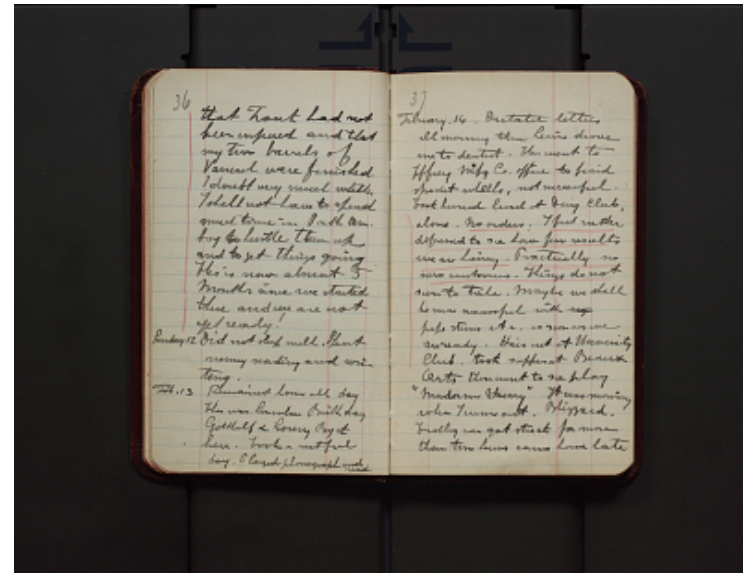 36
that Trant had not
been injured and that
my two barrels of
were finished.
I doubt very much
I shall not have to spend
much time in Perth Am-
boy to hustle them up
and to get things going
This is now almost 5
Months since we started
there and we are not
yet ready!
Sunday 12 Did not sleep well. Spent
morning reading and wri-
ting.
Feb. 13 Remained home all day
This was Lincoln Birthday
here. Took a restful
day. Played phonograph and
read
37
February. 14. Dictated letters
all morning then drove
me to dentist. Then went to
Jeffrey Mfg Co. office to find
wheels, not successful.
Took hurried lunch at Club,
alone. No orders. I feel rather
depressed to see how few results
we are having. Practically no
new customers. Things do not
seem to take. Maybe we shall
be more successful with
as soon as we
are ready. at University
Club. took supper at Beaux
Arts then went to see play
"Madame Sherry" It was snowing
when I came out. Blizzard.
Trolley car got stuck for more
than two hours came home late